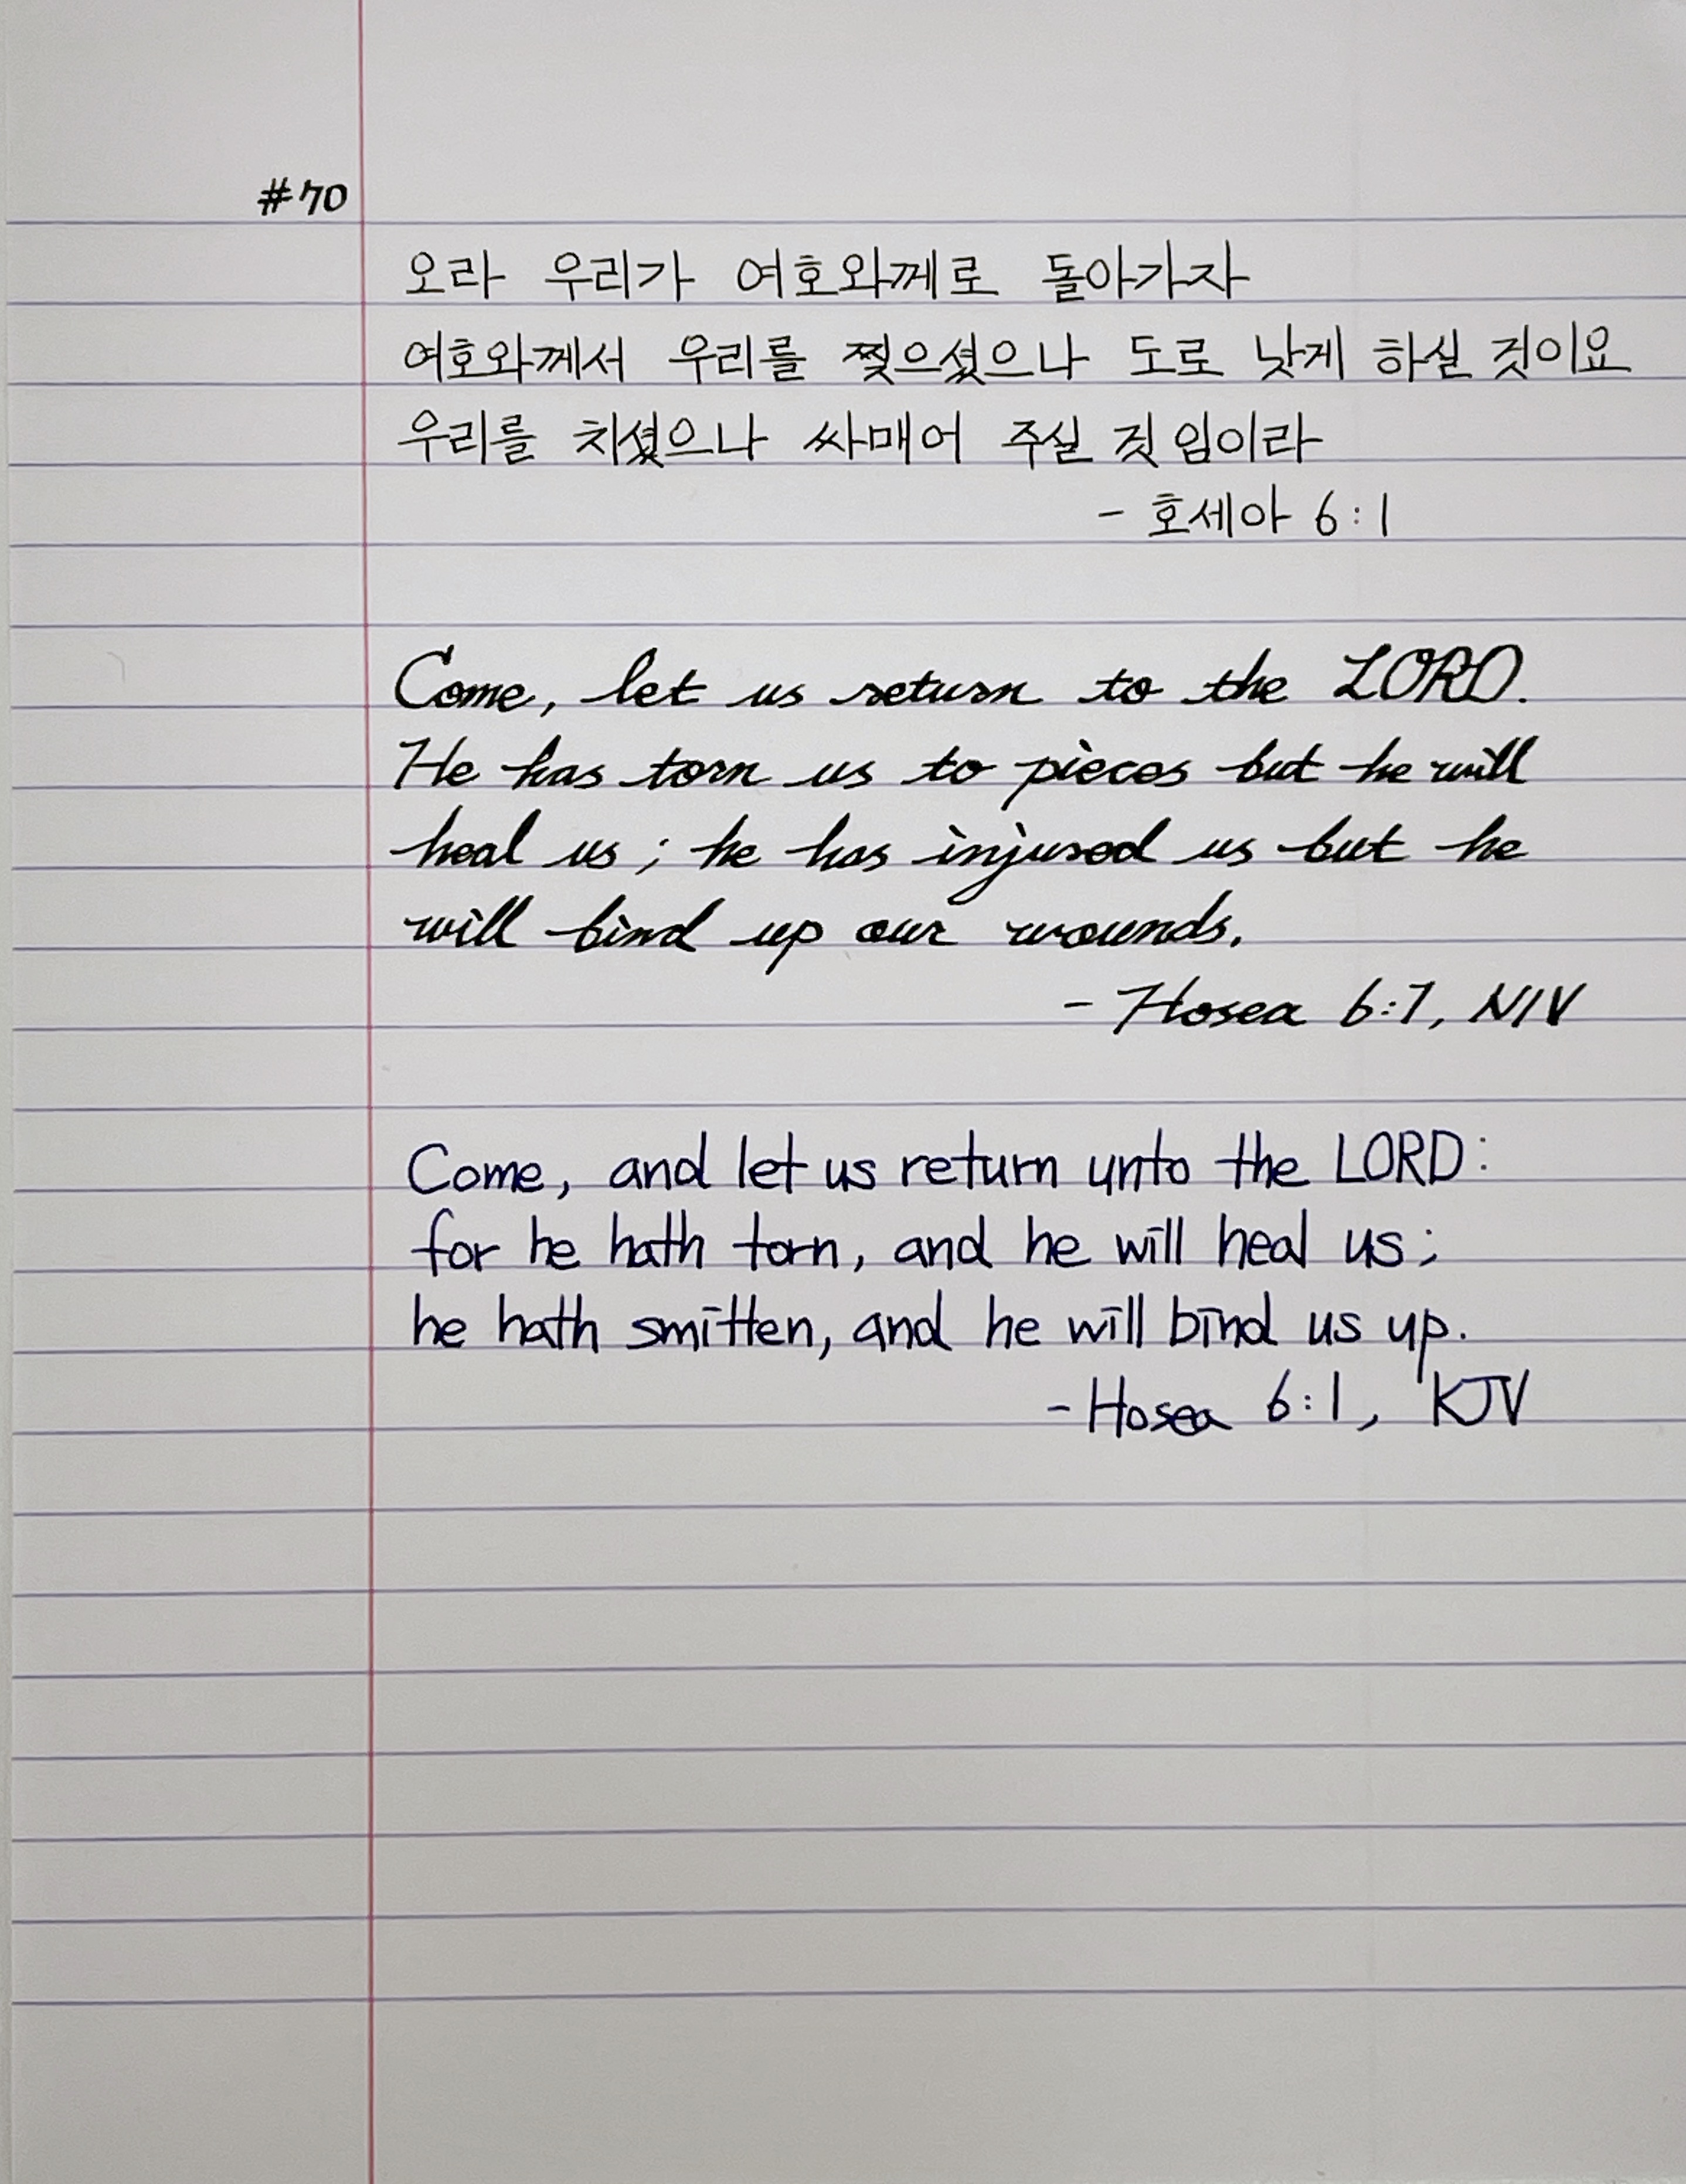 #70
오라 우리가 여호와께로 돌아가자
여호와께서 우리를 찢으셨으나 도로 낫게 하실 것이요
우리를 치셨으나 싸매어 주실 것임이라
- 호세아 6:1
Come, let us return to the LORD.
He has torn us to pieces but he will
heal us; he has injured us but he
will bind up our wounds.
- Hosea 6:1, NIV
Come, and let us return unto the LORD:
for he hath torn, and he will heal us;
he hath smitten, and he will bind us up.
- Hosea 6:1, KJV